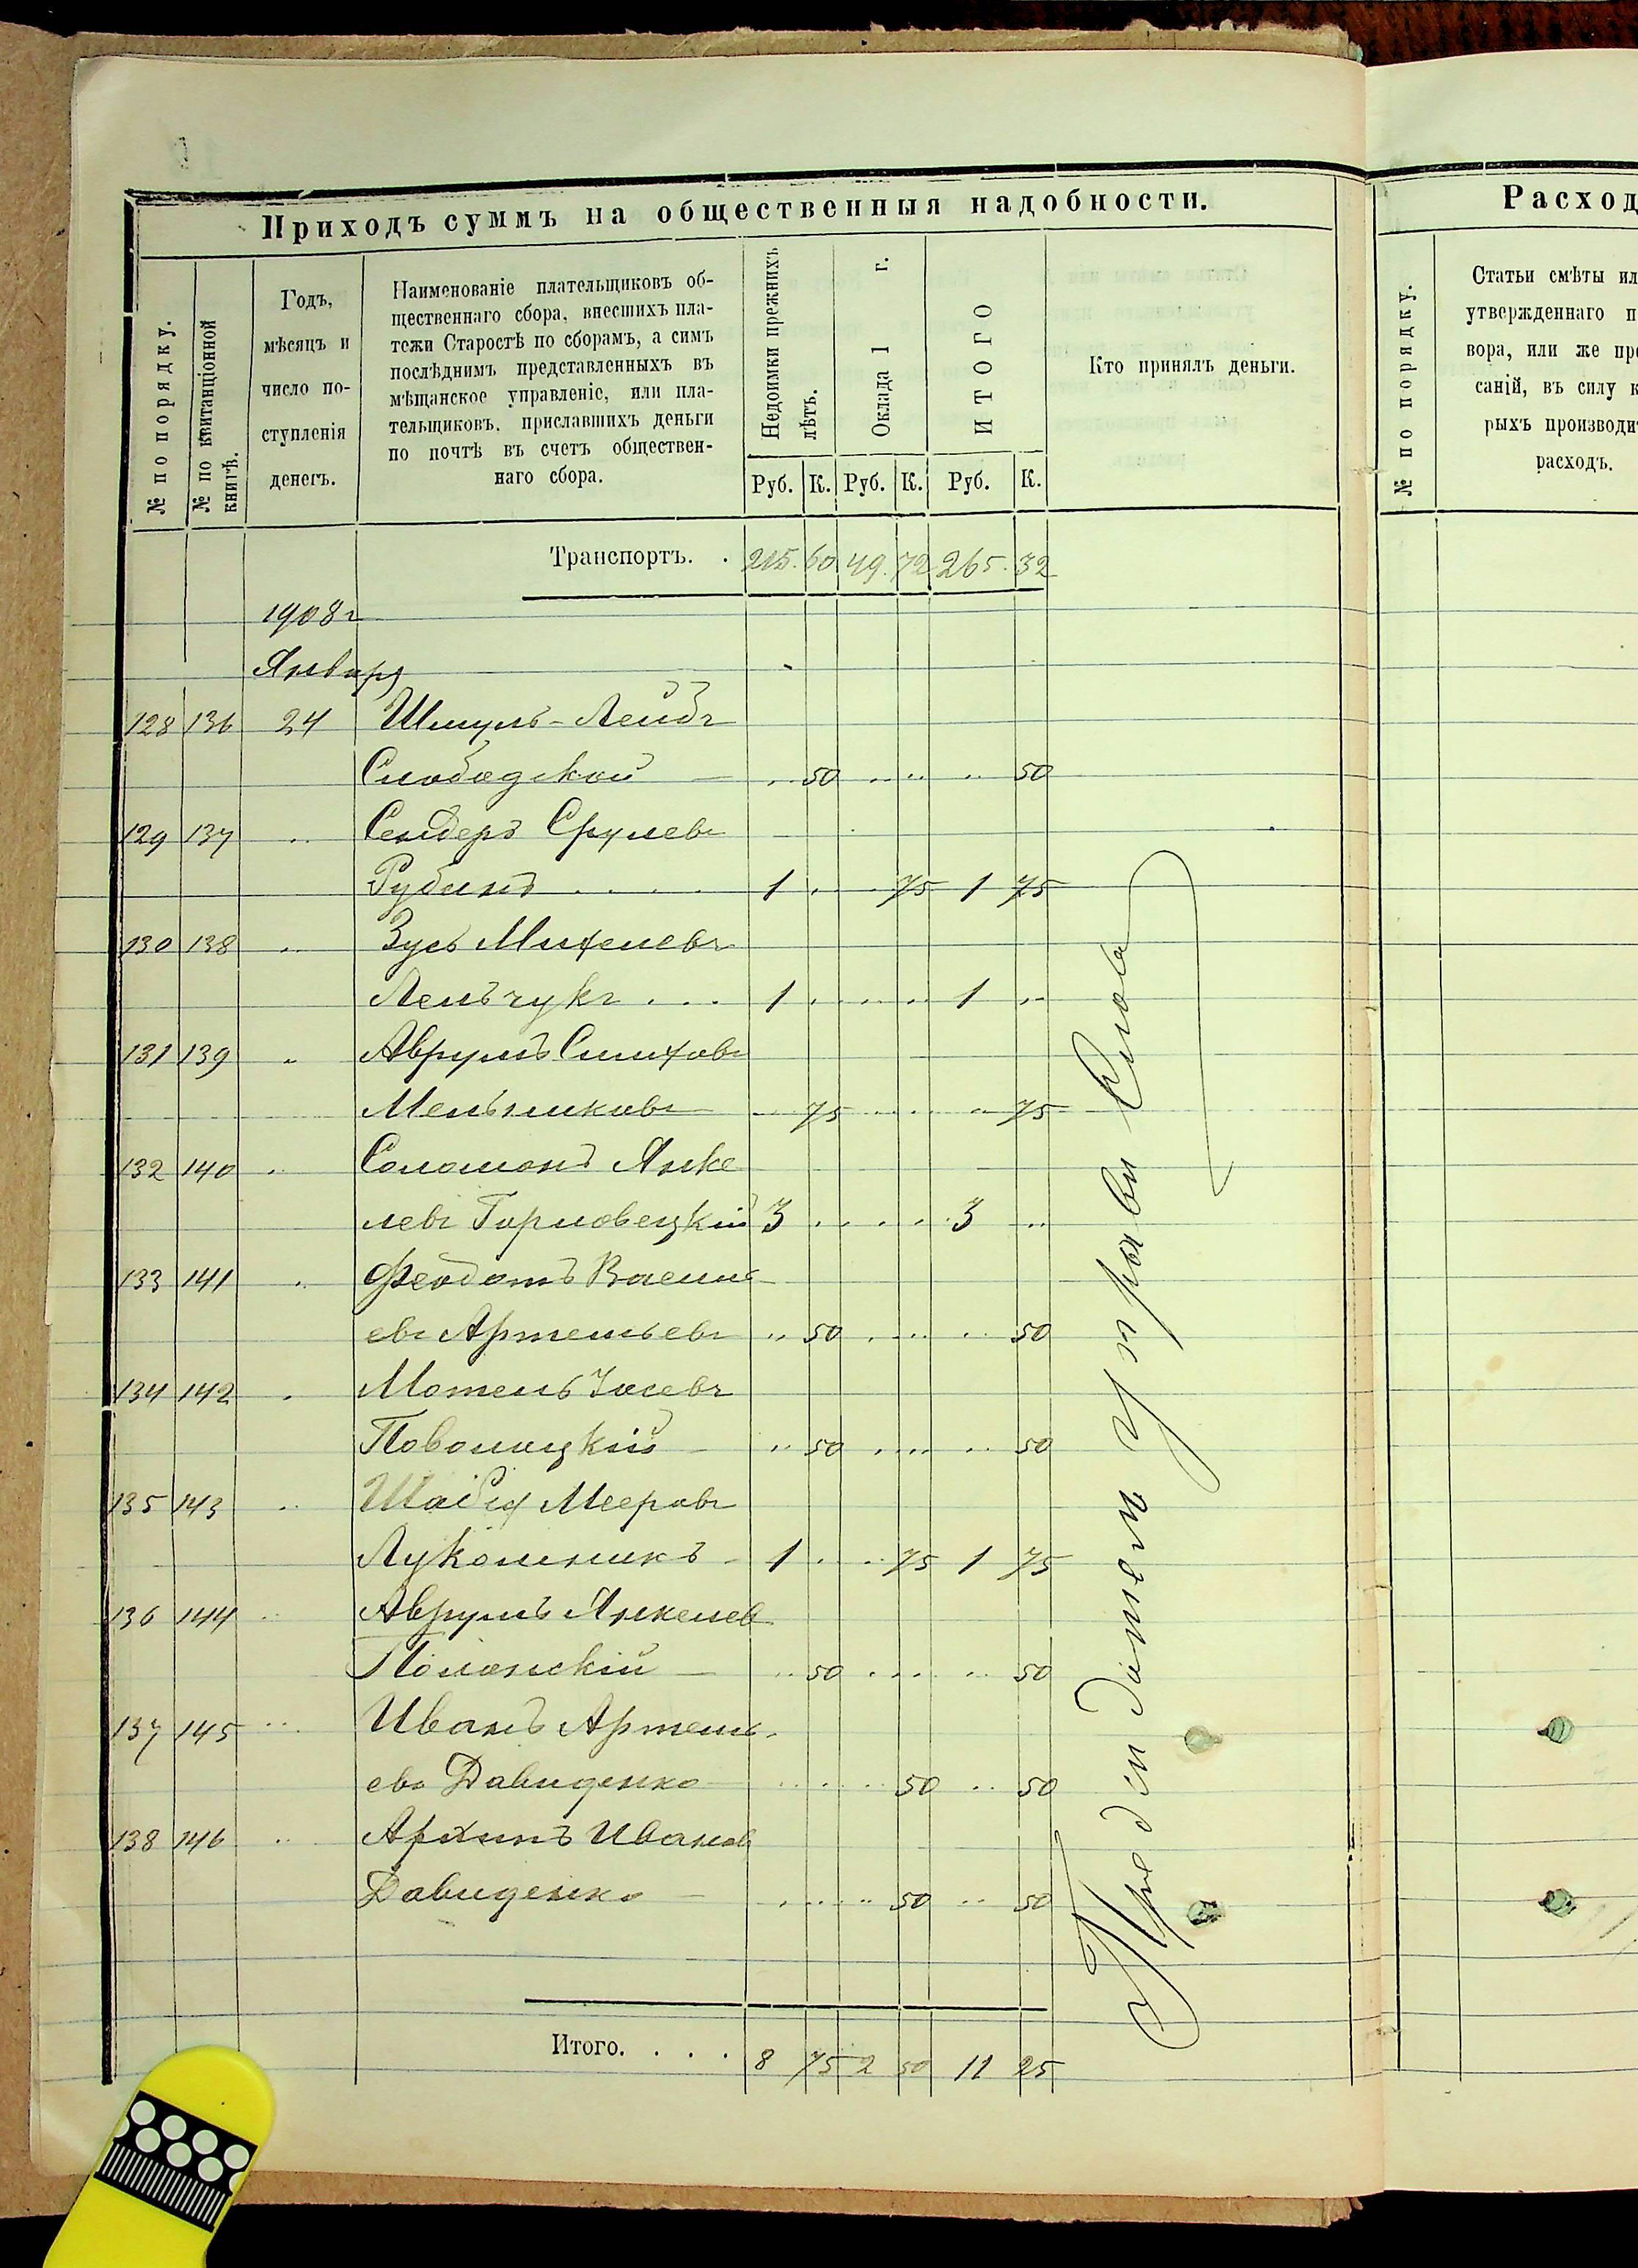 Приходъ суммъ на общественныя надобности.
№ по порядку.
№ по квитанціонной книгѣ.
Годъ,
мѣсяцъ и
число по-
ступленія
денегъ.
Наименованіе плательщиковъ об-
щественнаго сбора, внесшихъ пла-
тежи Старостѣ по сборамъ, а симъ
послѣднимъ представленныхъ въ
мѣщанское управленіе, или пла-
тельщиковъ, приславшихъ деньги
по почтѣ въ счетъ обществен-
наго сбора.
Недоимки прежнихъ лѣтъ.
Оклада 1 г.
ИТОГО
Кто принялъ деньги.
Руб. К. Руб. К. Руб. К.
Транспортъ. . 215. 60 49. 72 265. 32
1908 г
Января
128 136 24 Шмуль-Лейба
Слободской — .. 50 .. .. .. 50
129 137 .. Сендеръ Срулевъ
Рубинъ . . . . 1 . .. 75 1 75
130 138 .. Зусь Михелевъ
Лельчукъ . . . 1 . . . . 1 ..
131 139 .. Аврумъ Симховъ
Мельниковъ — 75 . . . . 75
132 140 .. Соломонъ Янке
левъ Горловецкій 3 . . . . 3 ..
133 141 .. Феодотъ Васильев
евъ Артемьевъ .. 50 . .. .. 50
134 142 .. Мотель Іосевъ
Поволоцкій — .. 50 . .. .. 50
135 143 .. Мееровъ
Лукомникъ - 1 . .. 75 1 75
136 144 .. Аврумъ Янкелев
Полонскій — .. 50 . .. .. 50
137 145 ... Иванъ Артемь-
евъ Давиденко .. . .. 50 .. 50
138 146 .. Архипъ Иванов
Давиденко — . .. .. 50 .. 50
Итого. . . . 8 75 2 50 11 25
Управы
Расход
№ по порядку.
Статьи смѣты ил
утвержденнаго п
вора, или же пре
саній, въ силу к
рыхъ производи
расходъ.